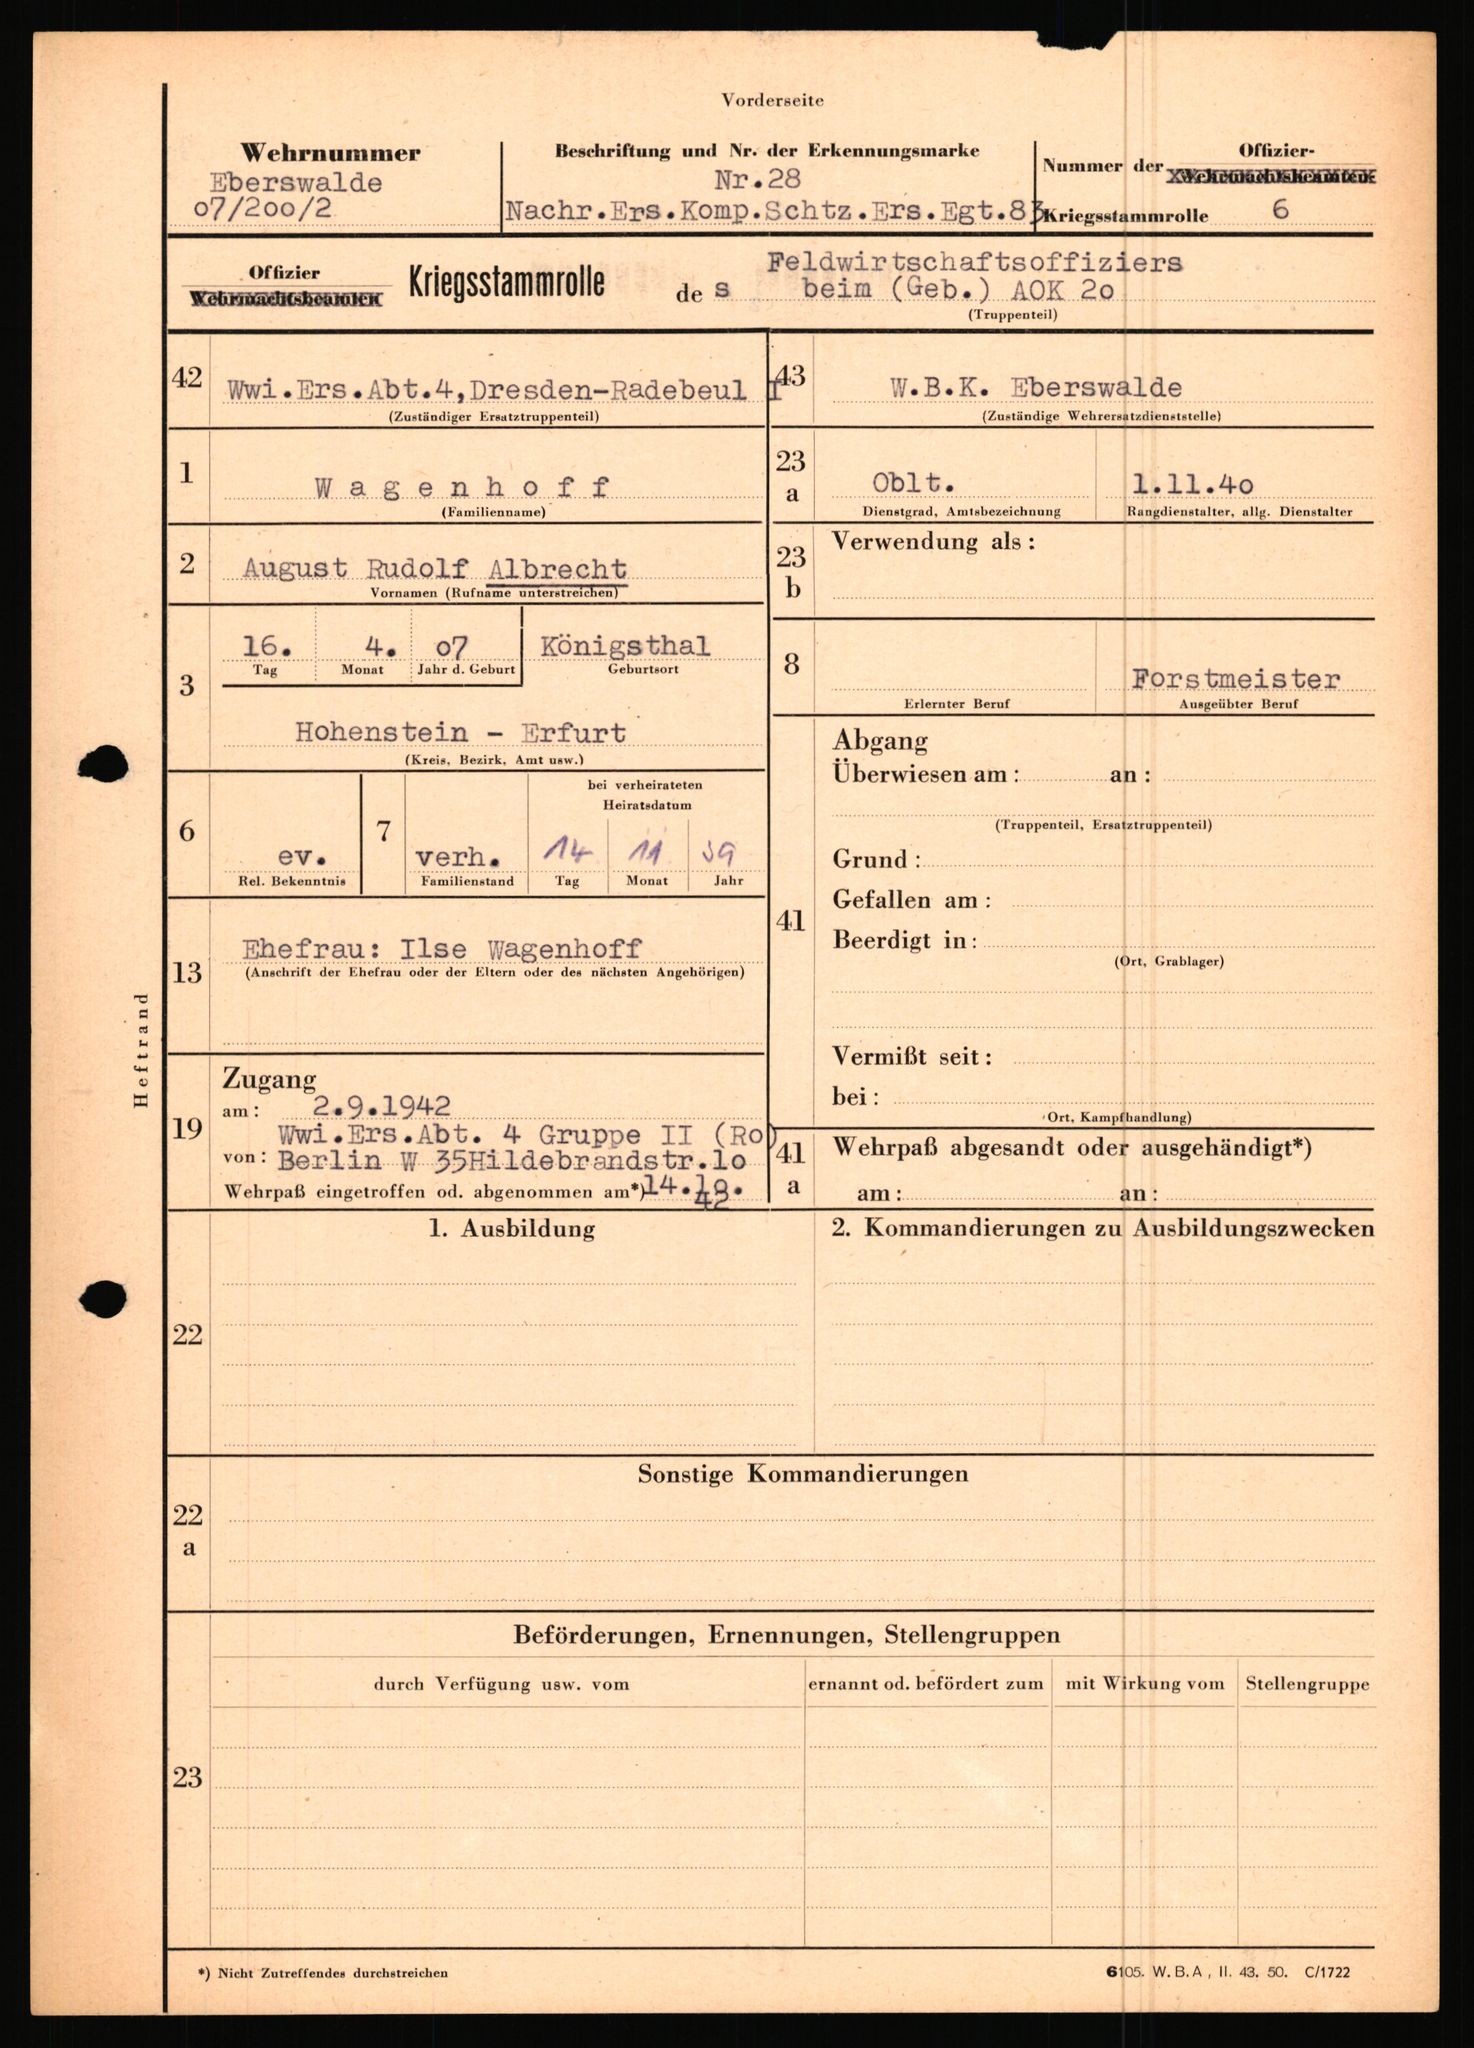 Vorderseite
Wehrnummer
Eberswalde
07/200/2
Beschriftung und Nr. der Erkennungsmarke
Nr.28
Nachr.Ers.Komp.Schtz.Ers.Egt.83
Offizier-
Nummer der Wehrmachtsbeamten-
Kriegsstammrolle 6
Offizier
Wehrmachtsbeamten
Kriegsstammrolle
des
Feldwirtschaftsoffiziers
beim (Geb.) AOK 20
(Truppenteil)
42 Wwi.Ers.Abt.4,Dresden-Radebeul I
(Zuständiger Ersatztruppenteil)
43 W.B.K. Eberswalde
(Zuständige Wehrersatzdienststelle)
1 Wagenhoff
(Familienname)
23 a Oblt. 1.11.40
Dienstgrad, Amtsbezeichnung Rangdienstalter, allg. Dienstalter
2 August Rudolf Albrecht
Vornamen (Rufname unterstreichen)
23 b Verwendung als:
3 16. 4. 07 Königsthal
Tag Monat Jahr d. Geburt Geburtsort
Hohenstein - Erfurt
(Kreis, Bezirk, Amt usw.)
8 Forstmeister
Erlernter Beruf Ausgeübter Beruf
6 ev.
Rel. Bekenntnis
7 verh.
Familienstand
bei verheirateten
Heiratsdatum
14 11 39
Tag Monat Jahr
13 Ehefrau: Ilse Wagenhoff
(Anschrift der Ehefrau oder der Eltern oder des nächsten Angehörigen)
41 Abgang
Überwiesen am: an:
(Truppenteil, Ersatztruppenteil)
Grund:
Gefallen am:
Beerdigt in:
(Ort, Grablager)
Vermißt seit:
bei:
(Ort, Kampfhandlung)
Heftrand
19 Zugang
am: 2.9.1942
Wwi.Ers.Abt. 4 Gruppe II (Ro)
von: Berlin W 35Hildebrandstr.10
Wehrpaß eingetroffen od. abgenommen am*)14.
41 a Wehrpaß abgesandt oder ausgehändigt*)
am: an:
22 1. Ausbildung
2. Kommandierungen zu Ausbildungszwecken
22 a Sonstige Kommandierungen
23 Beförderungen, Ernennungen, Stellengruppen
durch Verfügung usw. vom ernannt od. befördert zum mit Wirkung vom Stellengruppe
*) Nicht Zutreffendes durchstreichen
6105. W.B.A, II. 43. 50. C/1722